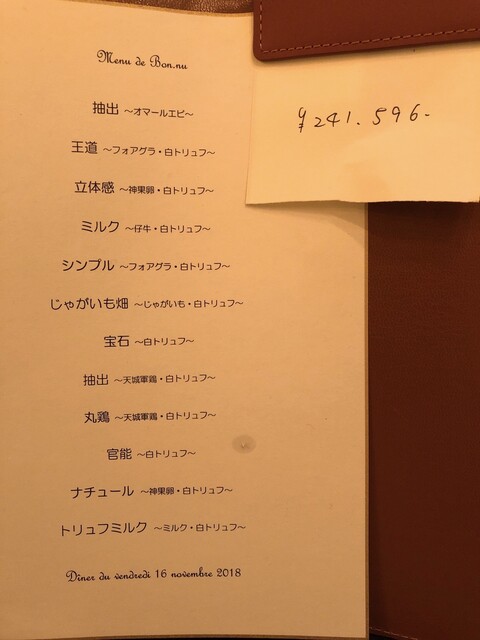 Menu de Bon.nu
¥241.596-
抽出 ～オマールエビ～
王道 ～フォアグラ・白トリュフ～
立体感 ～神果卵・白トリュフ～
ミルク ～仔牛・白トリュフ～
シンプル ～フォアグラ・白トリュフ～
じゃがいも畑 ～じゃがいも・白トリュフ～
宝石 ～白トリュフ～
抽出 ～天城軍鶏・白トリュフ～
丸鶏 ～天城軍鶏・白トリュフ～
官能 ～白トリュフ～
ナチュール ～神果卵・白トリュフ～
トリュフミルク ～ミルク・白トリュフ～
Dîner du vendredi 16 novembre 2018